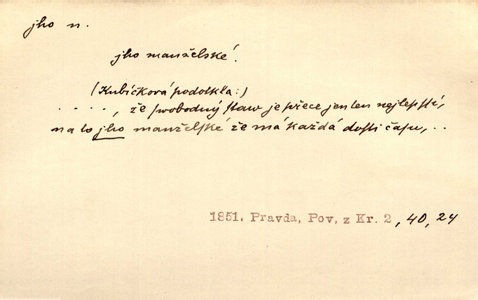 jho n.
jho manželské.
(Kubíčková podotkla:)
. . . . , že swobodný staw je přece jen len nejlepší,
na to jho manželské že má každá dosti času, . .
1851. Pravda, Pov. z Kr. 2, 40, 24